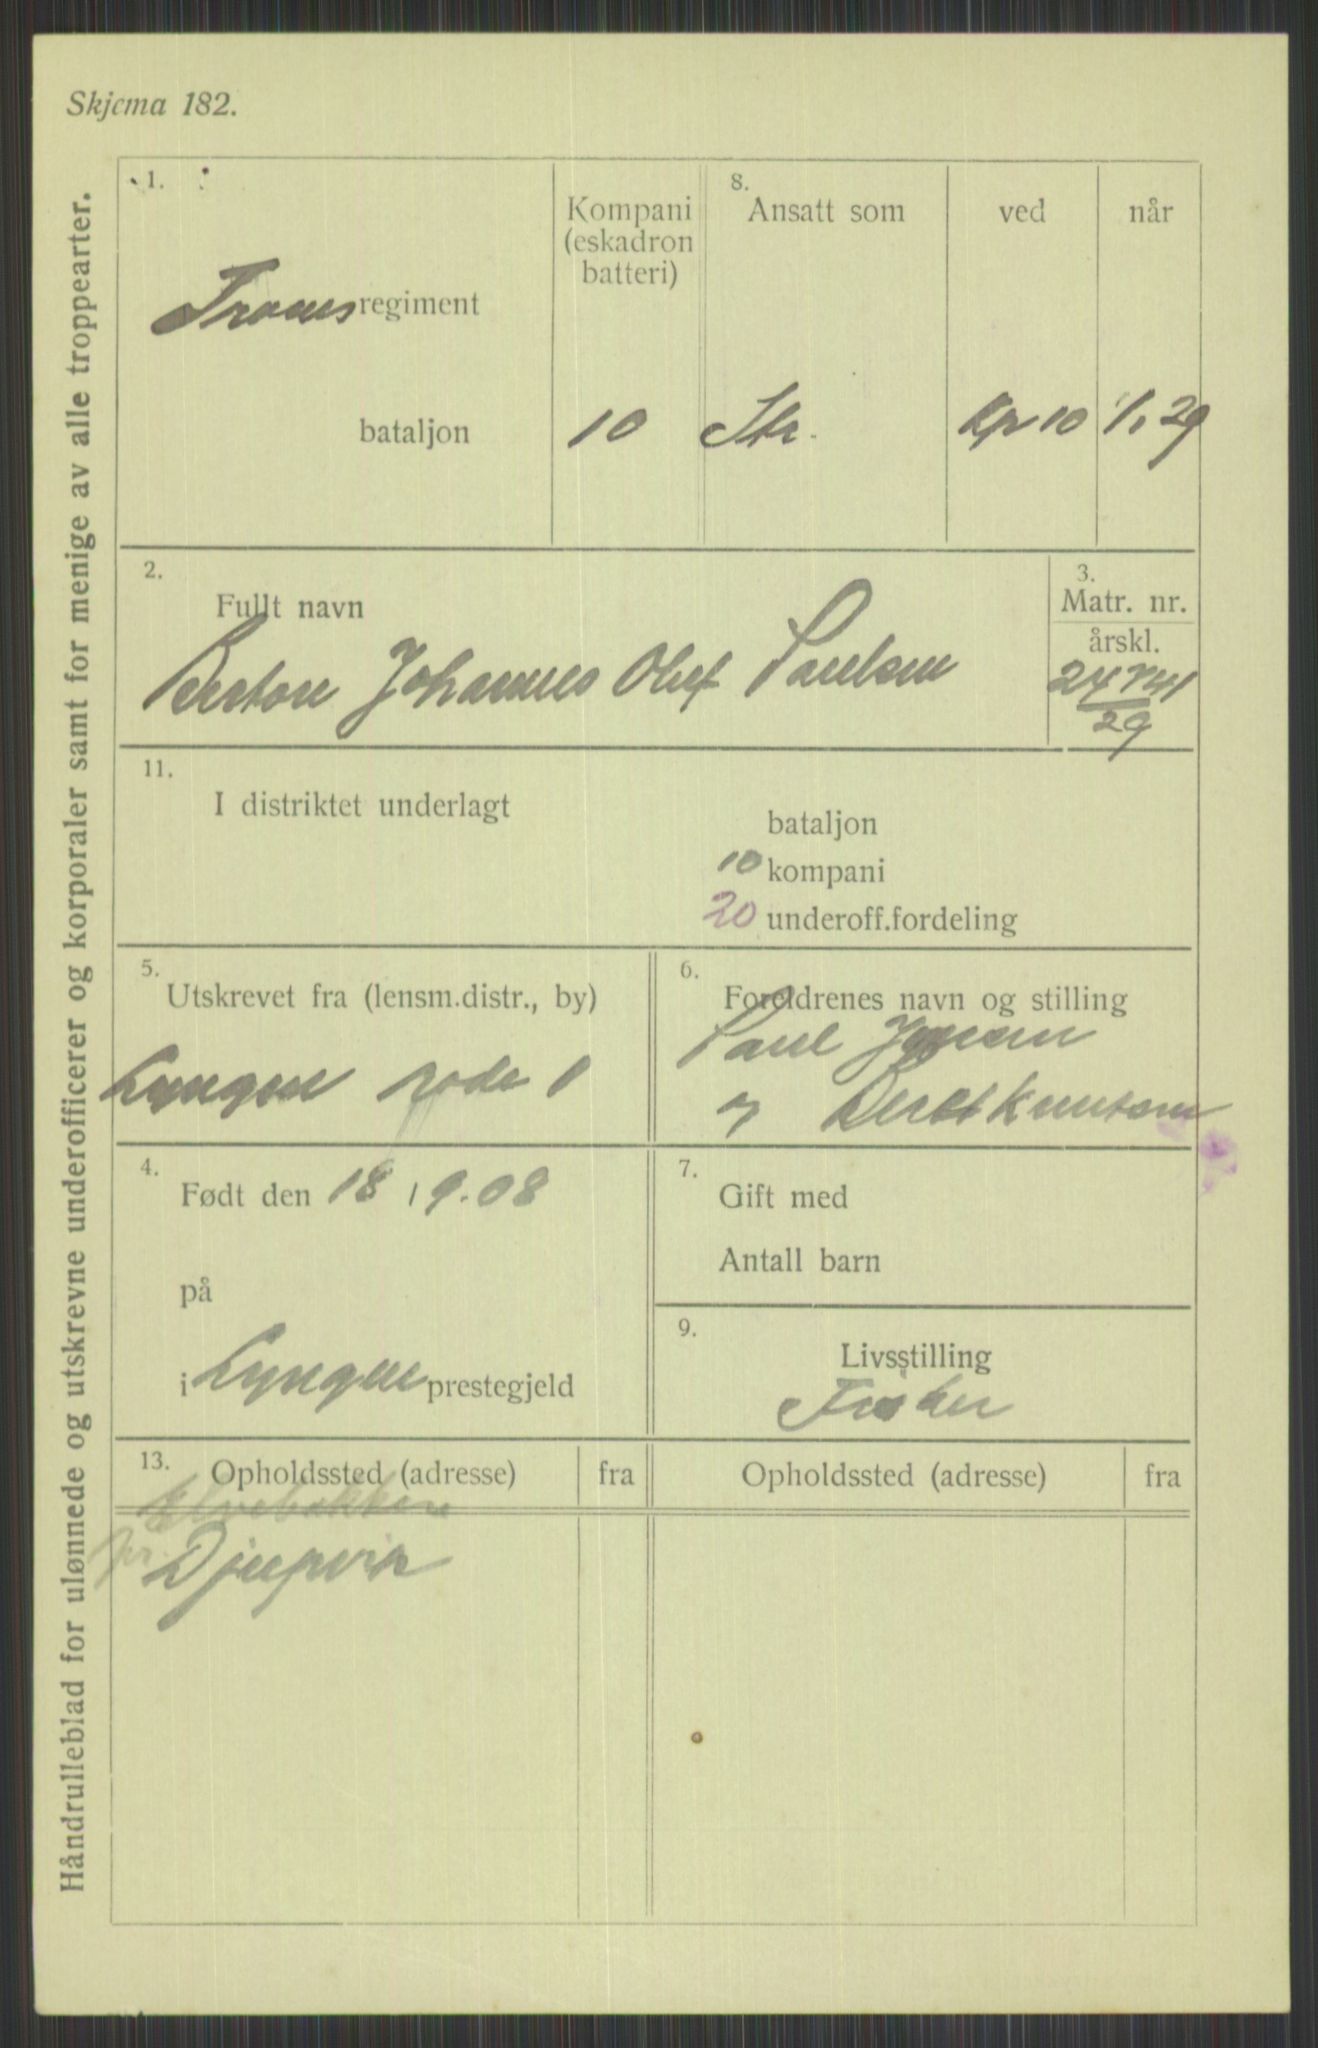 Skjema 182.
Håndrulleblad for ulønnede og utskrevne underofficerer og korporaler samt for menige av alle troppearter.
1.
Troms regiment
bataljon
Kompani
(eskadron
batteri)
10
8.
Ansatt som
ved
når
Str.
Kp 10
1/1 29
2.
Fullt navn
Berton Johannes Oluf Paulsen
3.
Matr. nr.
årskl.
29
11.
I distriktet underlagt
bataljon
10 kompani
20 underoff.fordeling
5.
Utskrevet fra (lensm.distr., by)
Lyngen rode 1
6.
Foreldrenes navn og stilling
Paul
Knutsen
4.
Født den 18/9.08
på
i Lyngen prestegjeld
7.
Gift med
Antall barn
9.
Livsstilling
Fisker
13.
Opholdssted (adresse)
fra
Opholdssted (adresse)
fra
Elvebakken
pr. Djupvik